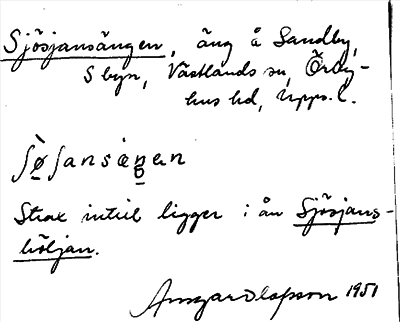 Sjösjansängen, äng å Sandby,
S byn, Västlands sn, Örby-
hus hd, Upps. l.
Strax intill ligger i ån Sjösjans-
höljan.
Ansgar Olofsson 1951